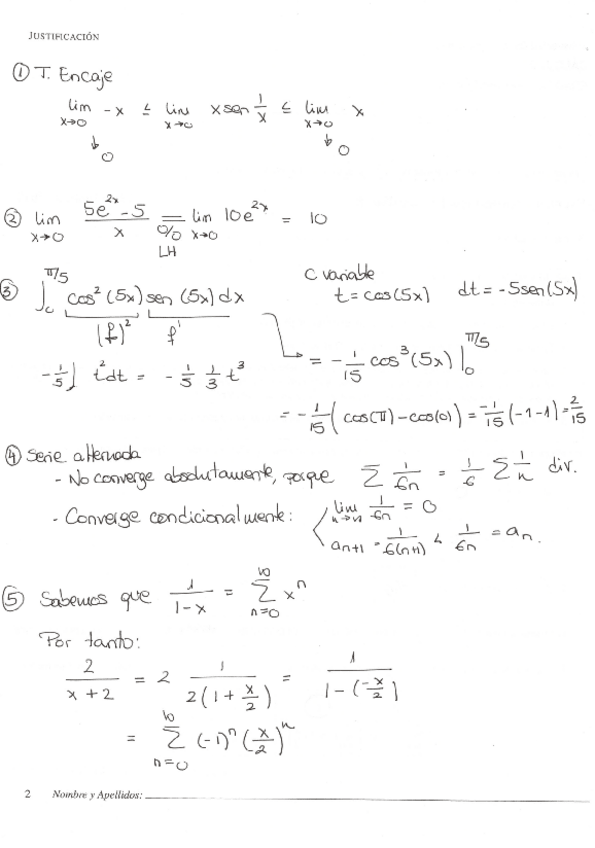 JUSTIFICACIÓN
① T. Encaje
lim x→0 -x ≤ lim x→0 x sen 1/x ≤ lim x→0 x
↓ 0 ↓ 0
② lim x→0 (5e^{2x} - 5)/x = 0/0 LH lim x→0 10e^{2x} = 10
③ ∫_0^{π/5} cos² (5x) sen (5x) dx
(f)² f'
C variable
t = cos(5x) dt = -5sen(5x)
-1/5 ∫ t² dt = -1/5 1/3 t³
= -1/15 cos³(5x) |_0^{π/5}
= -1/15 (cos(π) - cos(0)) = -1/15 (-1-1) = 2/15
④ Serie alternada
- No converge absolutamente, porque Σ 1/6n = 1/6 Σ 1/n div.
- Converge condicionalmente: lim n→∞ 1/6n = 0
a_{n+1} = 1/6(n+1) < 1/6n = a_n.
⑤ Sabemos que 1/(1-x) = Σ_{n=0}^{∞} x^n
Por tanto:
2/(x+2) = 2 1/(2(1+x/2)) = 1/(1-(-x/2))
= Σ_{n=0}^{∞} (-1)^n (x/2)^n
2 Nombre y Apellidos: